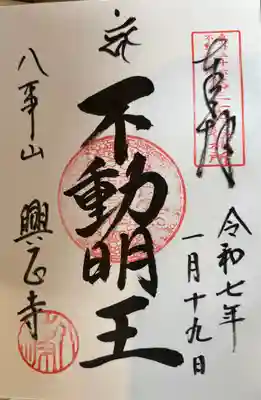 奉拝
令和七年
一月十九日
不動明王
八事山 興正寺